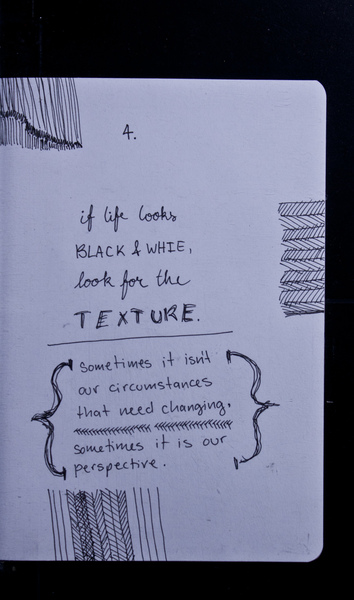 4.
if life looks
BLACK & WHIE,
look for the
TEXTURE.
sometimes it isn't
our circumstances
that need changing.
sometimes it is our
perspective.